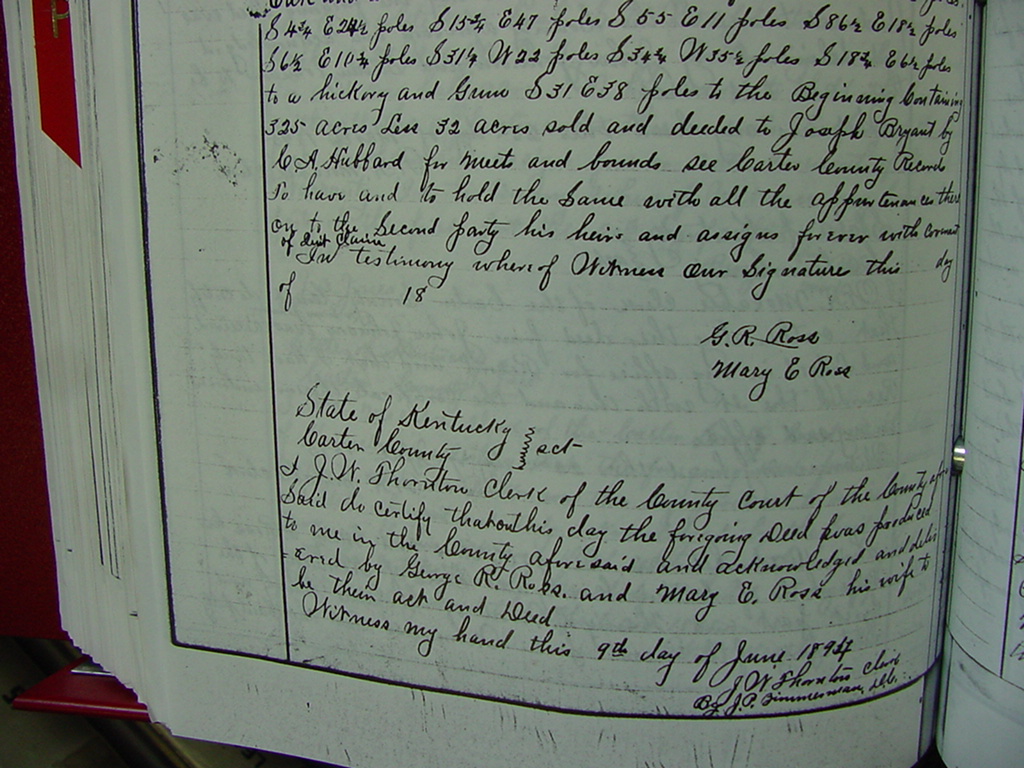 S 4¾ E 24½ poles S 15¾ E 47 poles S 55 E 11 poles S 86½ E 18½ poles
S 6½ E 10¾ poles S 31¼ W 22 poles S 34¾ W 35½ poles S 18¾ E 6½ poles
to a hickory and Gum S 31 E 38 poles to the Beginning Containing
325 acres Less 32 acres sold and deeded to Joseph Bryant by
C A Hubbard for meets and bounds see Carter County Records
To have and to hold the Same with all the appurtenances there
on to the Second party his heirs and assigns forever with Covenant
of Quit Claim
In testimony whereof Witness Our Signatures this day
of 18
G. R. Ross
Mary E Ross
State of Kentucky
Carter County } sct
I J. W. Thornton Clerk of the County Court of the County afore
Said do certify that on this day the foregoing Deed was produced
to me in the County aforesaid and acknowledged and deliv
=ered by George R. Ross. and Mary E. Ross his wife to
be them act and Deed
Witness my hand this 9th day of June 1894
J W Thornton Clerk
By J. P. Zimmerman, D.C.